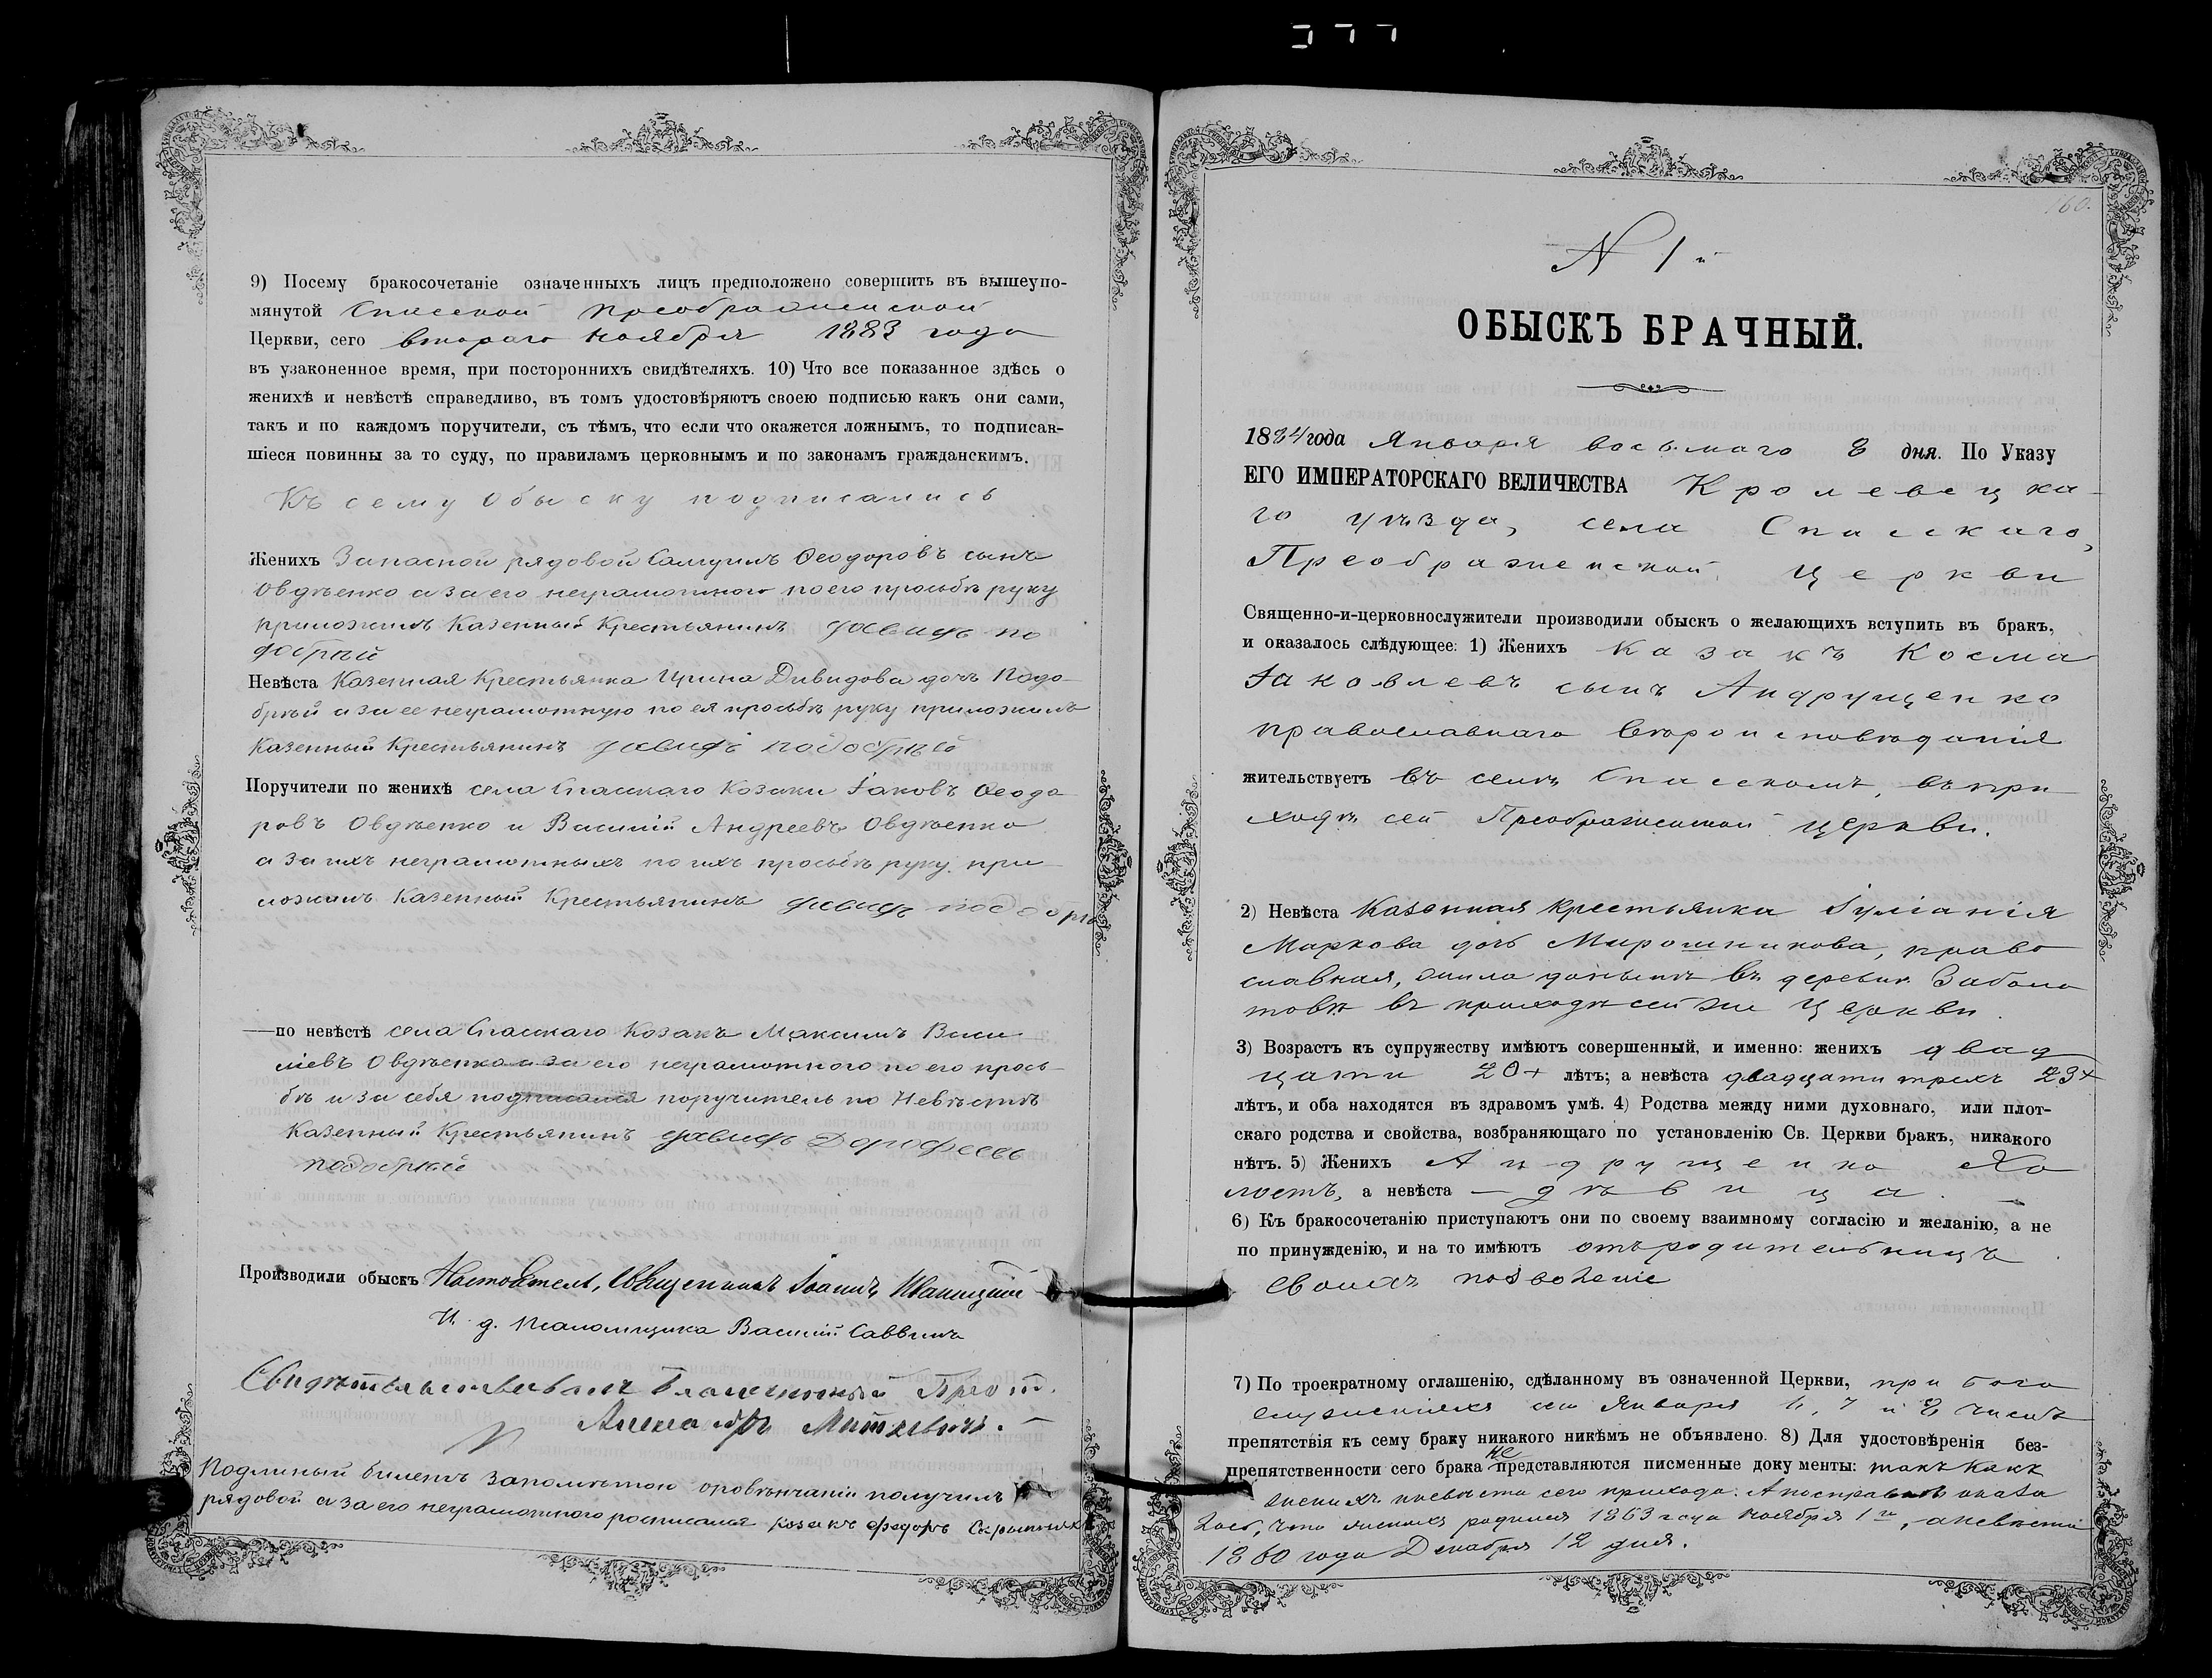 9) Посему бракосочетаніе означенныхъ лицъ предположено совершить въ вышеупо-
мянутой Спасской Преображенской
Церкви, сего втораго ноября 1883 года
въ узаконенное время, при постороннихъ свидѣтеляхъ. 10) Что все показанное здѣсь о
женихѣ и невѣстѣ справедливо, въ томъ удостовѣряютъ своею подписью какъ они сами,
такъ и по каждомъ поручители, съ тѣмъ, что если что окажется ложнымъ, то подписав-
шіеся повинны за то суду, по правиламъ церковнымъ и по законамъ гражданскимъ.
Къ сему Обыску подписались
Женихъ Запасной рядовой Самуилъ Ѳеодоровъ сынъ
Овдѣенко а за его неграмотнаго по его просьбѣ руку
приложилъ Казенный Крестьянинъ давидъ по
добрый
Невѣста Казенная Крестьянка Ирина Давидова дочь Подо-
брѣй а за ее неграмотную по ея просьбѣ руку приложилъ
Казенный Крестьянинъ давидъ подобрѣй
Поручители по женихѣ села Спасскаго Козаки Іаковъ Ѳеодо
ровъ Овдѣенко и Василій Андреевъ Овдѣенко
а за ихъ неграмотныхъ по ихъ просьбѣ руку при
ложилъ Казенный Крестьянинъ давидъ подобрѣ
—по невѣстѣ села Спасскаго Козакъ Максимъ Васи
ліевъ Овдѣенко а за его неграмотного по его прось-
бѣ и за себя подписался поручитель по Невѣстѣ
Казенный Крестьянинъ давидъ Дорофеевъ
подобрый
Производили обыскъ Настоятель, Священникъ Іоаннъ Иваницкій
И. д. псаломщика Василій Саввичъ
Свидѣтельствовалъ Благочинный Прот.
Александръ Миткевичъ.
Подлинный билетъ запомѣтою оповѣнчаніи получилъ
рядовой а за его неграмотного росписался козакъ Федоръ
160.
N 1й
ОБЫСКЪ БРАЧНЫЙ.
1884 года Января восьмаго 8 дня. По Указу
ЕГО ИМПЕРАТОРСКАГО ВЕЛИЧЕСТВА Кролевецка-
го уѣзда, села Спасскаго,
Преображенской Церкви
Священно-и-церковнослужители производили обыскъ о желающихъ вступить въ бракъ,
и оказалось слѣдующее: 1) Женихъ Казакъ Косма
Іаковлевъ сынъ Андрущенко
православнаго вѣроисповѣданія
жительствуетъ въ селѣ Спасскомъ, въ при
ходѣ сей Преображенской церкви.
2) Невѣста Казенная крестьянка Іуліанія
Маркова дочь Мирошникова, право
славная, жила донынѣ въ деревнѣ Заболо
товѣ въ приходѣ сей же Церкви.
3) Возрастъ къ супружеству имѣютъ совершенный, и именно: женихъ двад
цати 20+ лѣтъ; а невѣста двадцати трехъ 23+
лѣтъ, и оба находятся въ здравомъ умѣ. 4) Родства между ними духовнаго, или плот-
скаго родства и свойства, возбраняющаго по установленію Св. Церкви бракъ, никакого
нѣтъ. 5) Женихъ Андрущенко Хо
лостъ, а невѣста — дѣвица. —
6) Къ бракосочетанію приступаютъ они по своему взаимному согласію и желанію, а не
по принужденію, и на то имѣютъ отъ родительницъ
своихъ позволеніе
7) По троекратному оглашенію, сдѣланному въ означенной Церкви, при бого
служеніяхъ сего Января 1, 7 и 8 числъ
препятствія къ сему браку никакого никѣмъ не объявлено. 8) Для удостовѣренія без-
препятственности сего брака не представляются писменные доку менты: такъ какъ
женихъ и невѣста сего прихода. А по справкѣ оказа
лось, что женихъ родился 1863 года Ноября 1го, а невѣста
1860 года Декабря 12 дня.